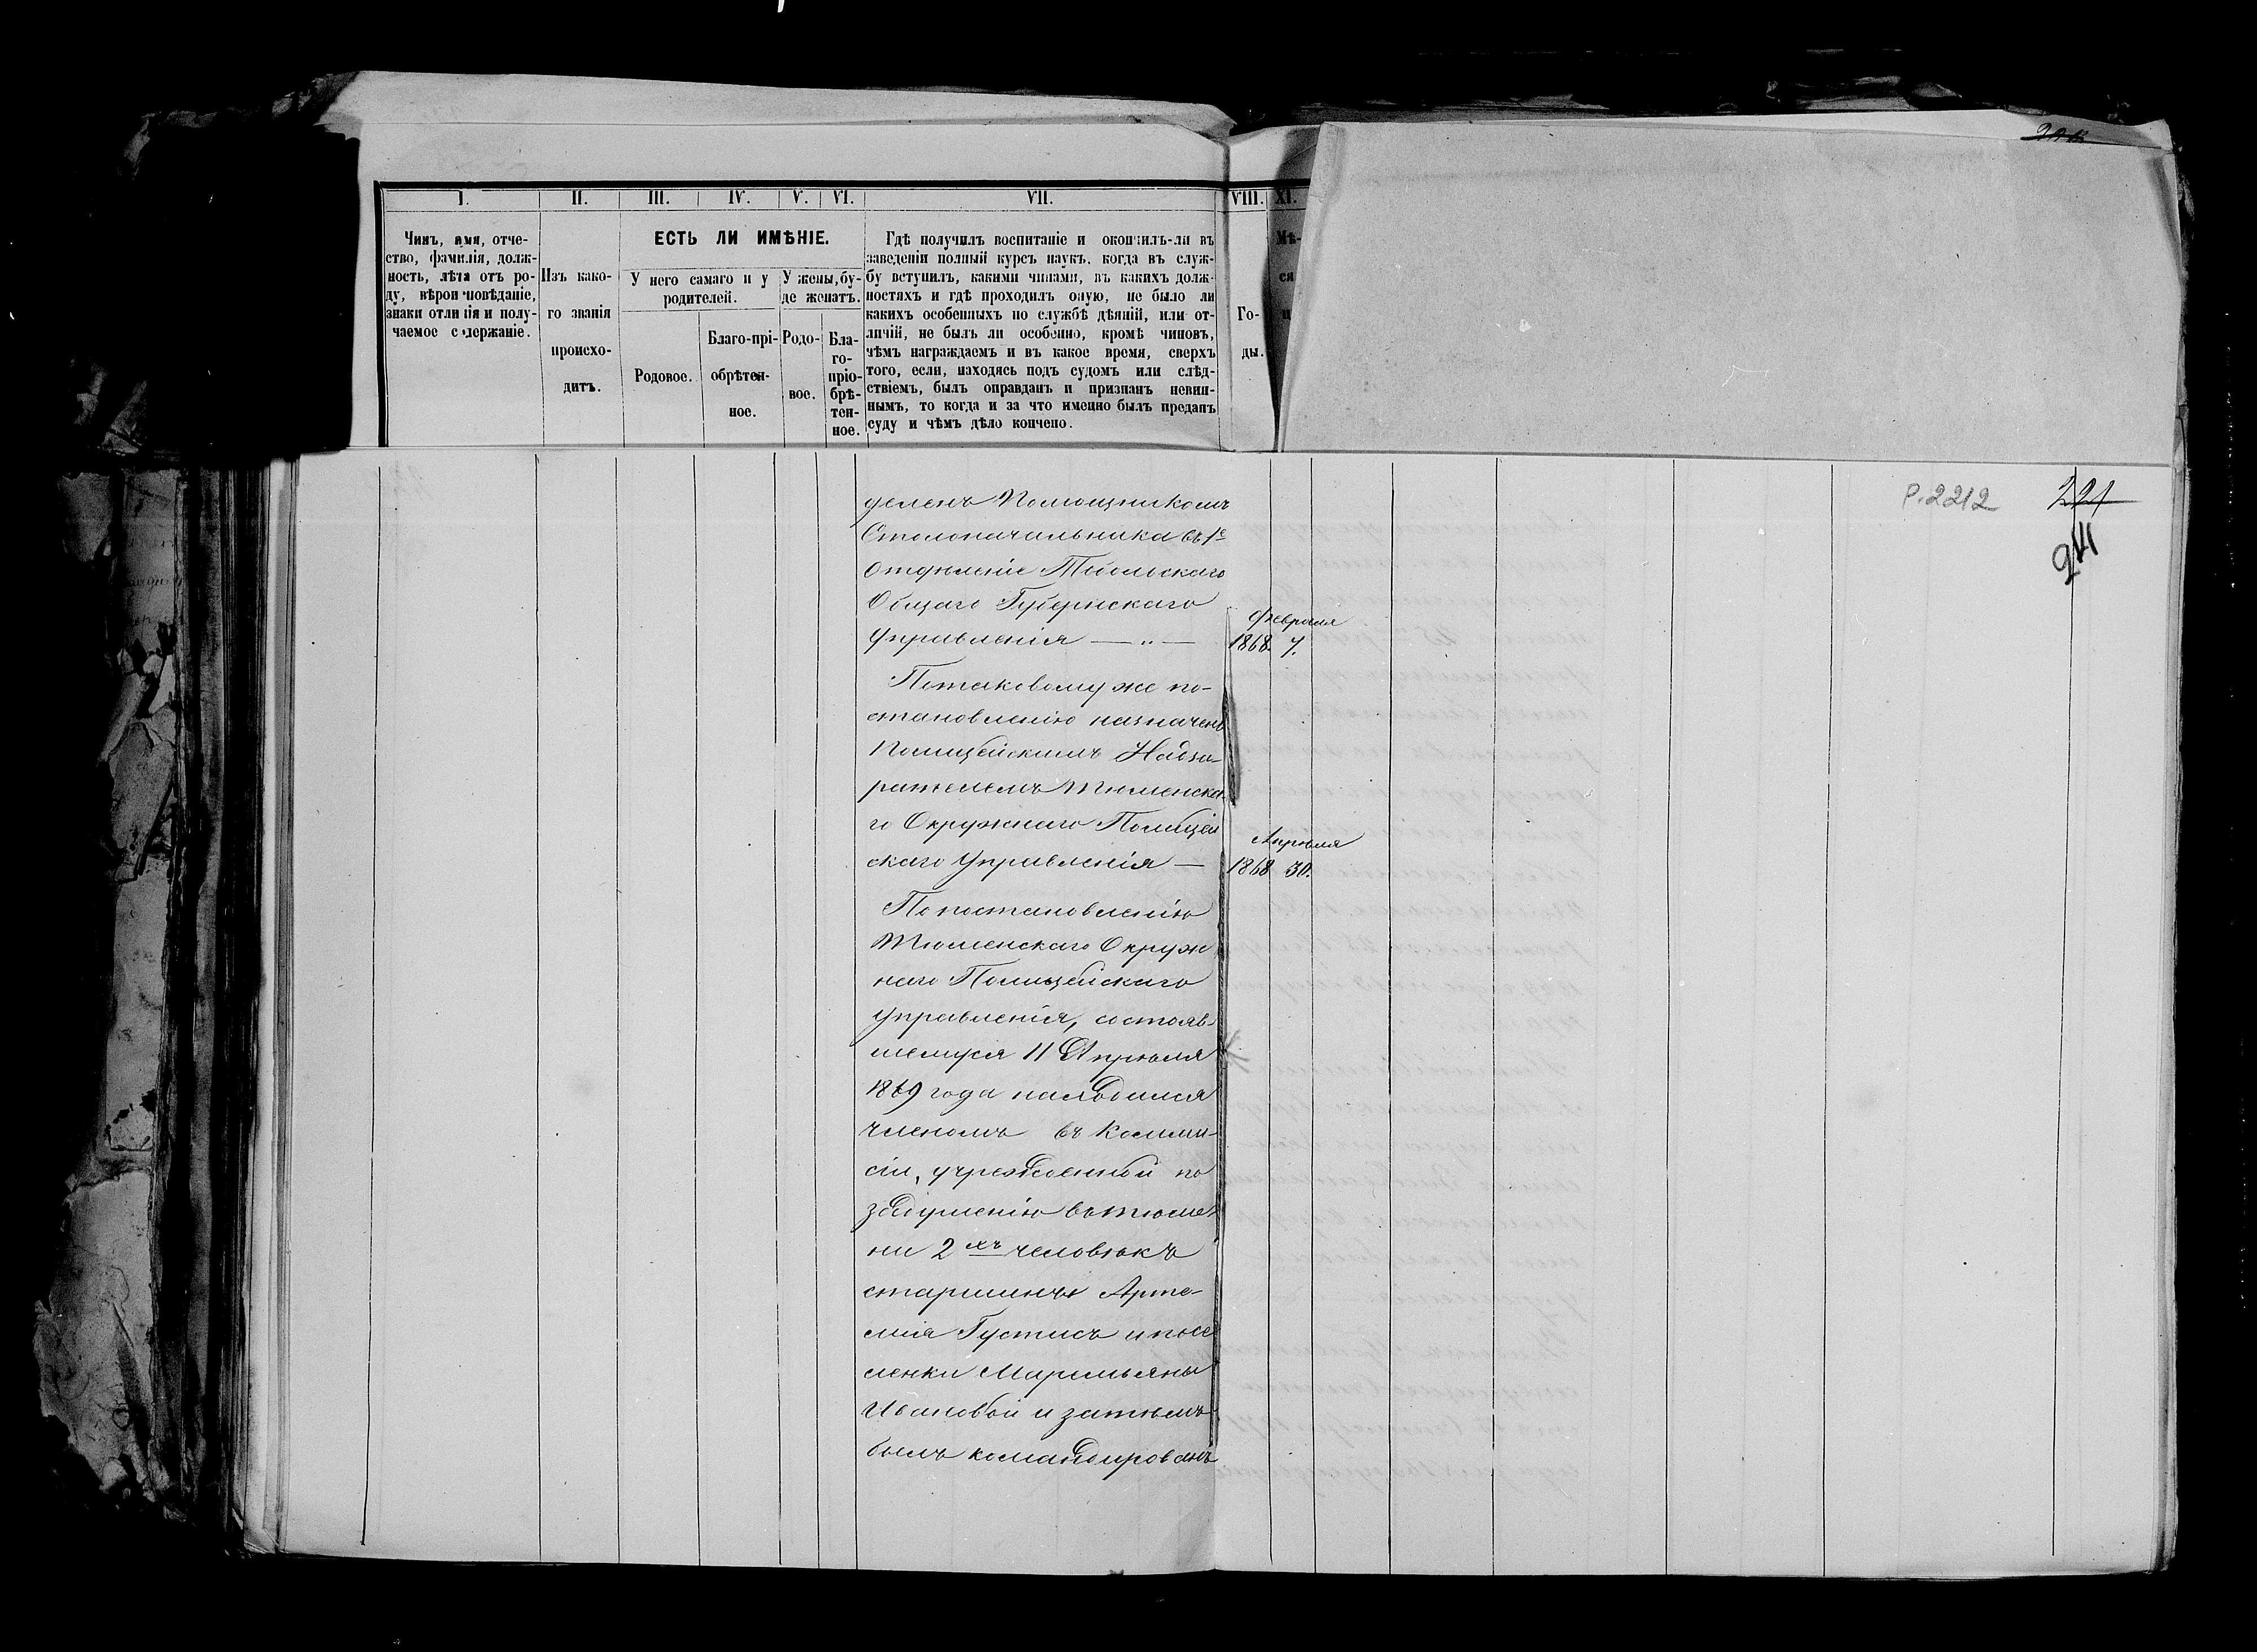 I. II. III. IV. V. VI. VII. VIII. XI.
Чинъ, имя, отче-
ство, фамилія, долж-
ность, лѣта отъ ро-
ду, вѣроисповѣданіе,
знаки отличія и полу-
чаемое содержаніе.
Изъ како-
го званія
происхо-
дитъ.
ЕСТЬ ЛИ ИМѢНІЕ.
У него самаго и у
родителей.
У жены, бу-
де женатъ.
Родовое.
Благо-прі-
обрѣтен-
ное.
Родо-
вое.
Бла-
го-
пріо-
брѣ-
тен-
ное.
Гдѣ получилъ воспитаніе и окончилъ-ли въ
заведеніи полный курсъ наукъ, когда въ служ-
бу вступилъ, какими чинами, въ какихъ долж-
ностяхъ и гдѣ проходилъ оную, не было ли
какихъ особенныхъ по службѣ дѣяній, или от-
личій, не былъ ли особенно, кромѣ чиновъ,
чѣмъ награждаемъ и въ какое время, сверхъ
того, если, находясь подъ судомъ или слѣд-
ствіемъ, былъ оправданъ и признанъ невин-
нымъ, то когда и за что именно былъ преданъ
суду и чѣмъ дѣло кончено.
Го-
ды.
Мѣ-
ся
ц
Р.2212
221
214
деленъ Помощникомъ
Столоначальника въ 1е
отдѣленіе Тобольскаго
Общаго Губернскаго
Управленія — „ —
Февраля
1868. 7.
Потаковому же по-
становленію назначенъ
Полицейскимъ Надзи-
рателемъ Тюменска-
го Окружнаго Полицей
скаго Управленія —
Апрѣля
1868 30.
По постановленію
Тюменскаго Окруж
наго Полицейскаго
Управленія, состояв-
шемуся 11 Апрѣля
1869 года находился
членомъ въ Комми-
сіи, учрежденной по
задушенію въ Тюме-
ни 2хъ человѣкъ
старшины Арте-
мія Густисъ и посе
ленки Маремьяны
Ивановой и затѣмъ
былъ командированъ